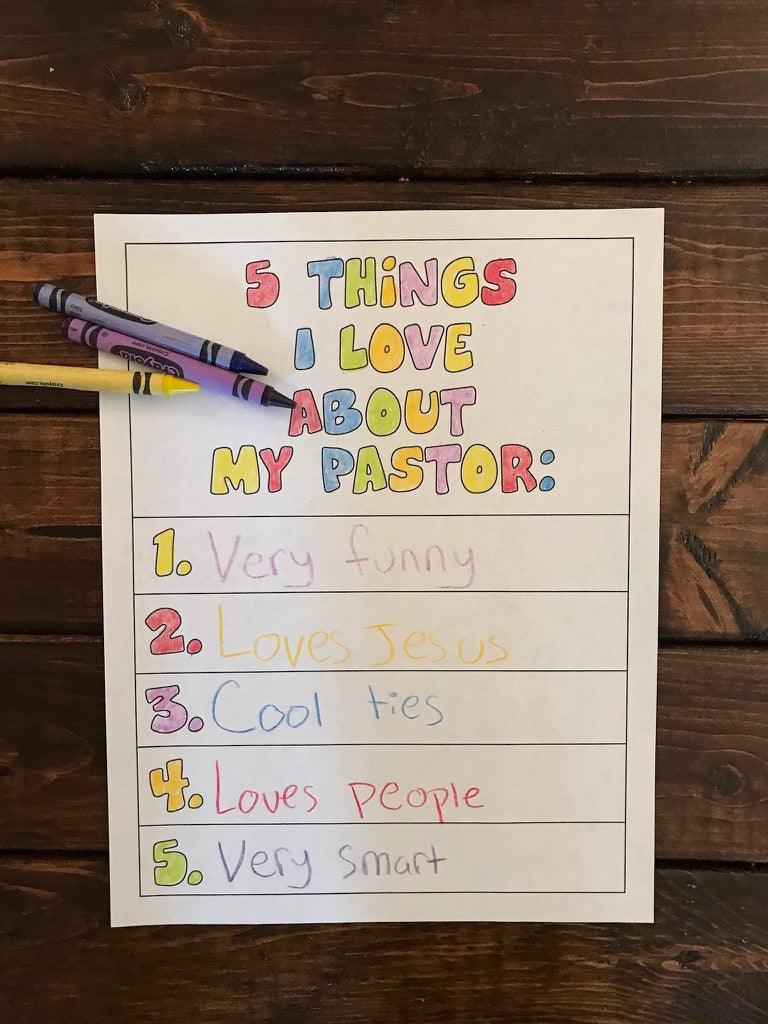 5 THiNGS
I LOVE
ABOUT
MY PASTOR:
1. Very funny
2. Loves Jesus
3. Cool ties
4. Loves people
5. Very smart
Crayola
Crayola.com
Crayola.com